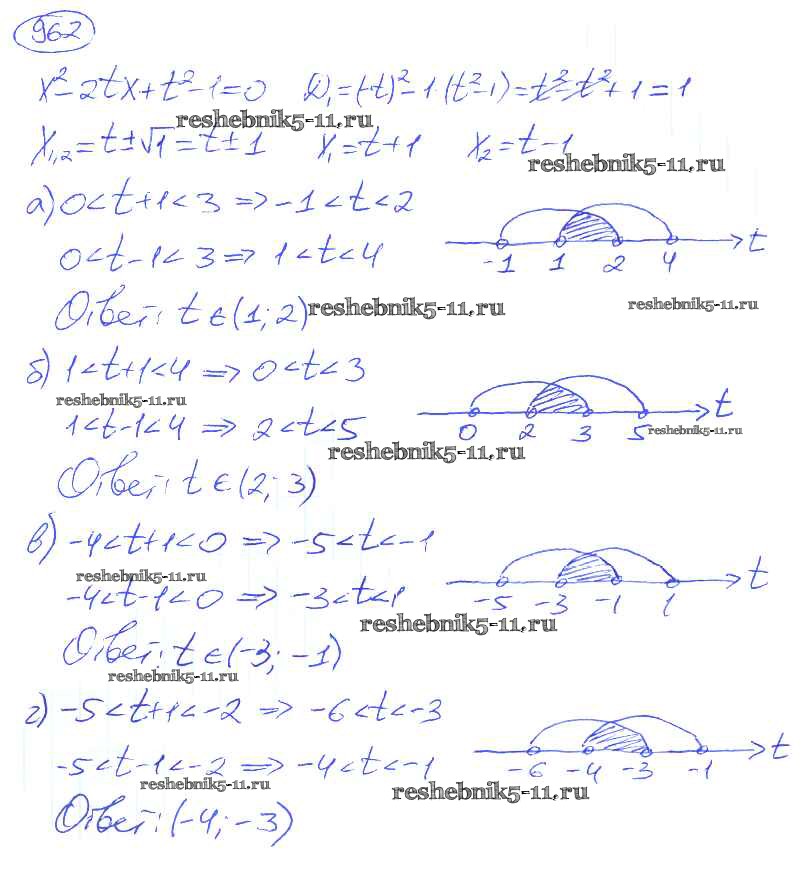 962
x² - 2tx + t² - 1 = 0 D₁ = (-t)² - 1(t² - 1) = t² - t² + 1 = 1
reshebnik5-11.ru
x₁,₂ = t ± √1 = t ± 1 x₁ = t + 1 x₂ = t - 1
reshebnik5-11.ru
а) 0 < t + 1 < 3 => -1 < t < 2
0 < t - 1 < 3 => 1 < t < 4
-1 1 2 4 t
Ответ: t ∈ (1; 2) reshebnik5-11.ru reshebnik5-11.ru
б) 1 < t + 1 < 4 => 0 < t < 3
reshebnik5-11.ru
1 < t - 1 < 4 => 2 < t < 5
0 2 3 5 t
reshebnik5-11.ru
reshebnik5-11.ru
Ответ: t ∈ (2; 3)
в) -4 < t + 1 < 0 => -5 < t < -1
reshebnik5-11.ru
-4 < t - 1 < 0 => -3 < t < 1
-5 -3 -1 1 t
reshebnik5-11.ru
Ответ: t ∈ (-3; -1)
reshebnik5-11.ru
г) -5 < t + 1 < -2 => -6 < t < -3
-5 < t - 1 < -2 => -4 < t < -1
-6 -4 -3 -1 t
reshebnik5-11.ru reshebnik5-11.ru
Ответ: (-4; -3)